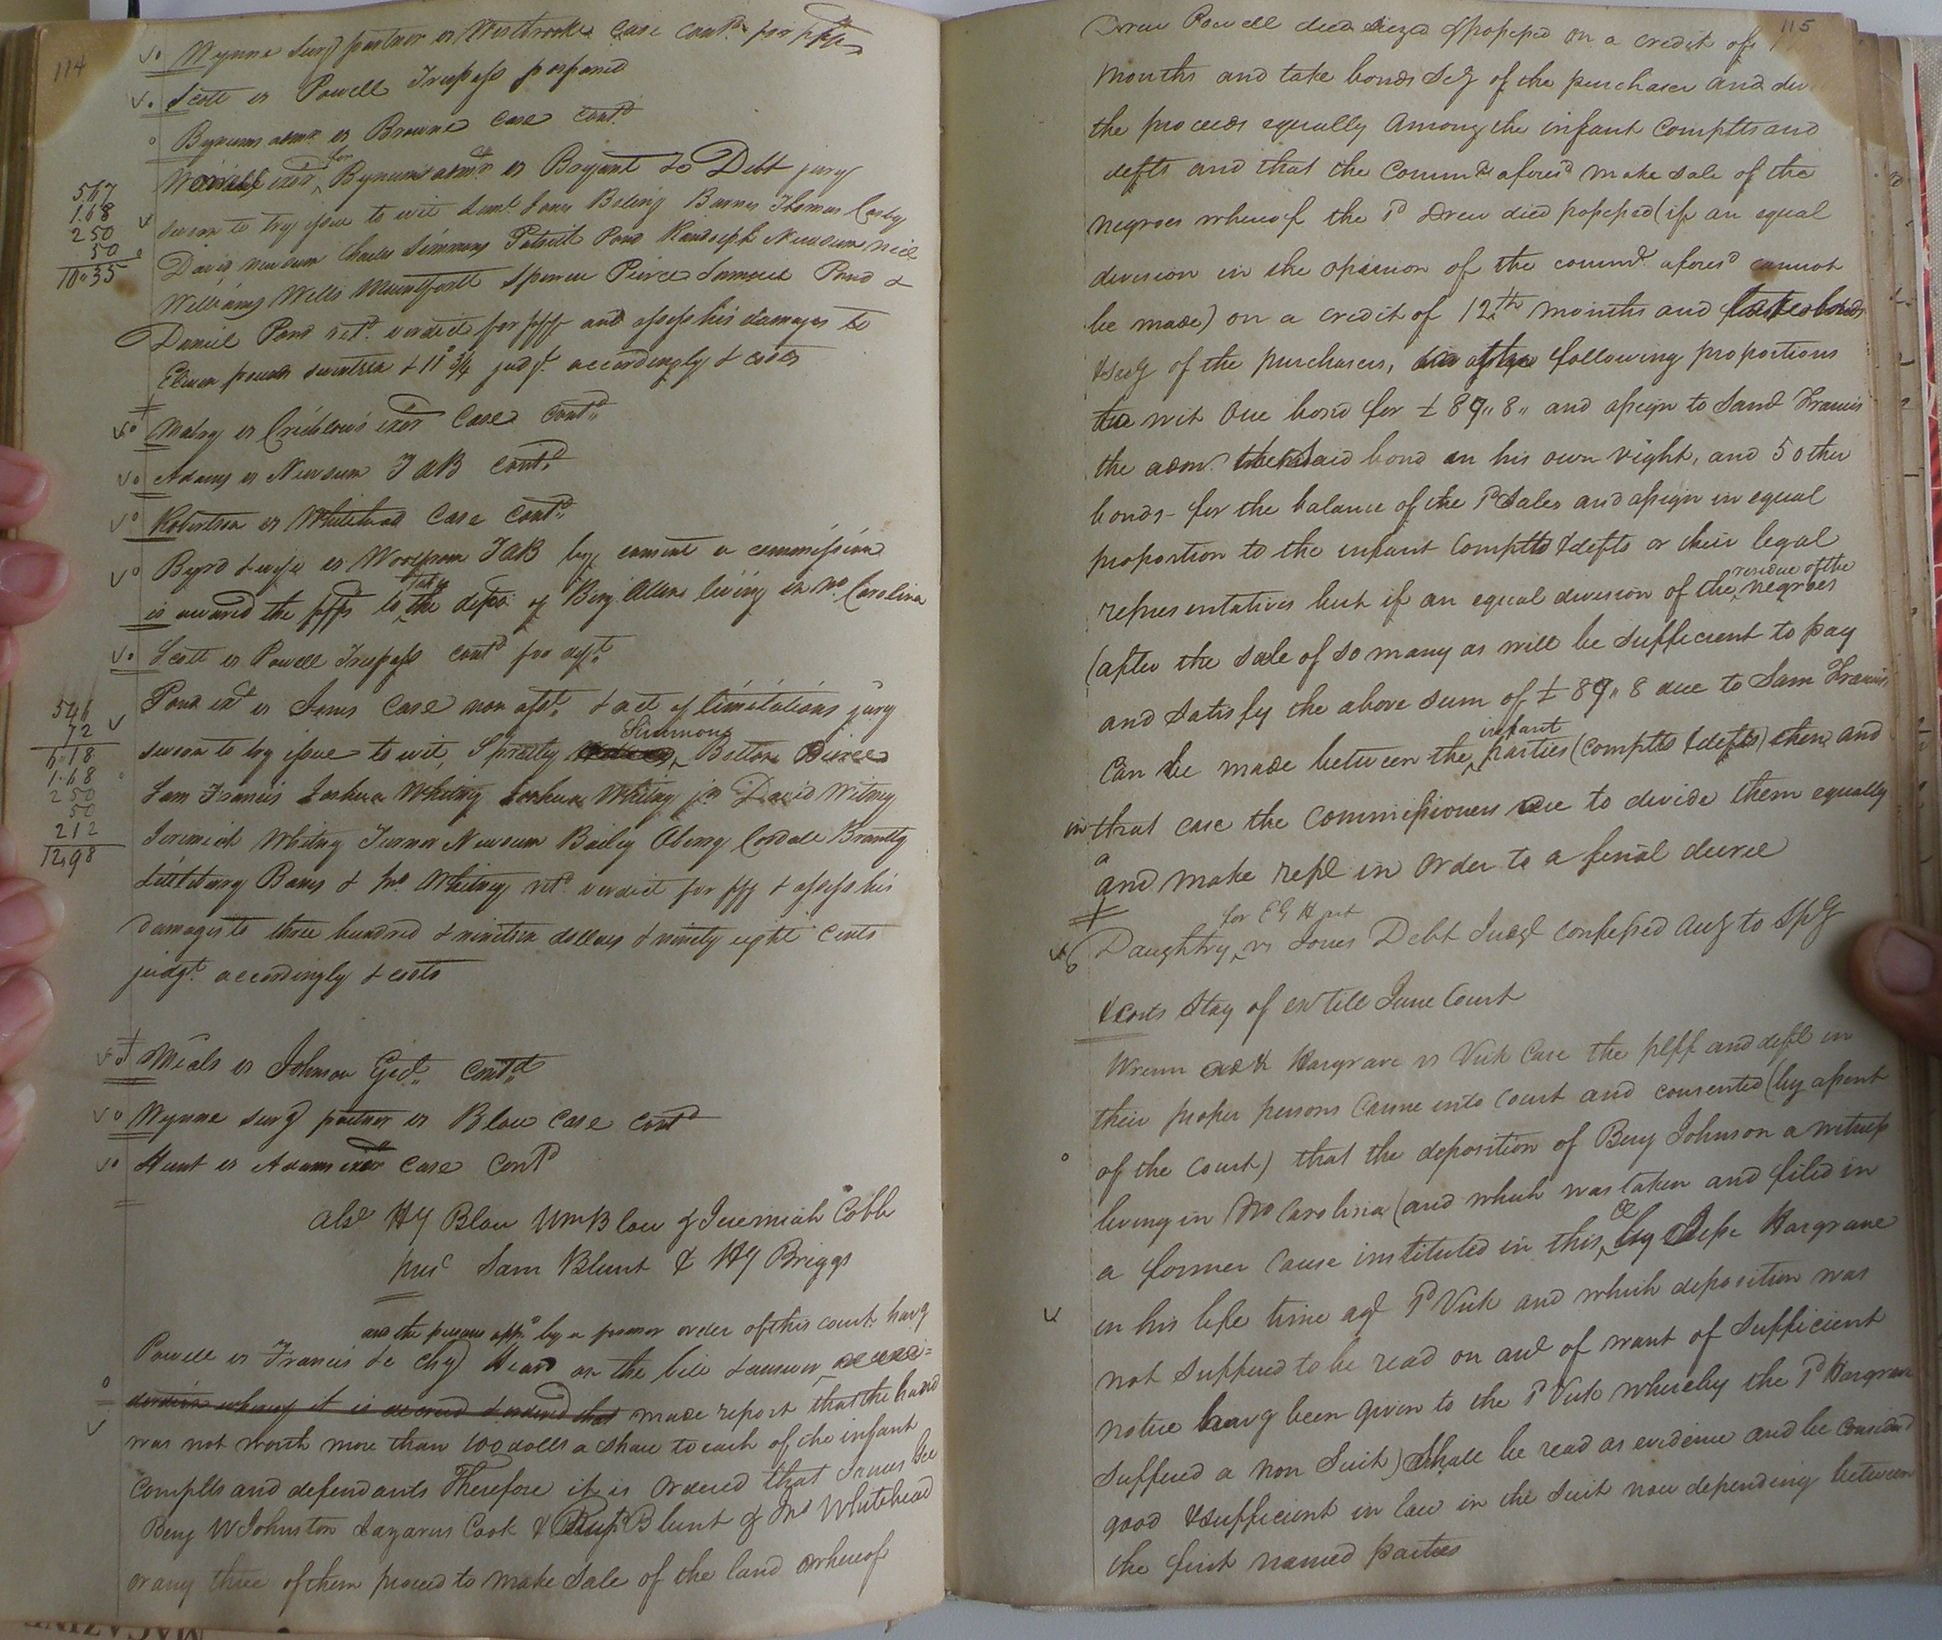 114
Wynne surg partner vs Westbrooke Case contd for pltf
Scott vs Powell Trespass posponed
Bynums admr vs Browne Case contd
567
168
250
50
10.35
exor for Bynums admr vs Bryant &c Debt jury
sworn to try issue to wit Saml Jones Boling Barnes Thomas
David Newsum Charles Simmons Patrick Pond Randolph Newsum Neil
Williams Wells Mountfortt Spencer Pierce Samuel Pond &
Daniel Pond retd verdict for plff and assess his damages to
Eleven pounds seventeen & 11 3/4 judgt accordingly & costs
Malry vs Crichlow's exor Case contd
Adams vs Newsum TAB contd
Robertson vs Whitehead Case contd
Byrd & wife vs Woodroom TAB by consent a commission
is awared the plffs to take the depo of Benj Allens living in No Carolina
Scott vs Powell Trespass contd for deft
546
72
6.18
1.68
250
50
212
12.98
Pond vs Jones Case non asst & act of limitations jury
sworn to try issue to wit, Spratley Simmons Bolton Pierce
Sam Francis Joshua Whitney Joshua Whitney jr David Witney
Jeremiah Whitney Turner Newsum Bailey Cordall Brantly
Littlebury Barns & Jno Whitney retd verdict for plff & assess his
damages to three hundred & nineteen dollars & ninety eight cents
judgt accordingly & costs
Meals vs Johnson Eject contd
Wynne surg partner vs Blow Case contd
Hunt vs Adams exor Case contd
Abst Hy Blow Wm Blow & Jeremiah Cobb
prest Sam Blunt & Hy Briggs
and the persons appd by a former order of this court havg
Powell vs Francis &c Chy Heard on the bill & answer
whereof it is decreed & ordered that made report that the land
was not worth more than 100 dolls a share to each of the infant
Complts and defendants Therefore it is Ordered that James Gee
Benj W Johnston Lazarus Cook & Blunt & Jno Whitehead
or any three of them proceed to make sale of the land whereof
115
Drew Powell died siezd & possessed on a credit of
months and take bonds & secy of the purchaser and
the proceeds equally Among the infant Complts and
defts and that the Commrs aforesd make sale of the
negroes whereof the sd Drew died possessed (if an equal
division in the opinion of the commrs aforesd cannot
be made) on a credit of 12th months and take bonds
& secy of the purchasers, in the following proportions
to wit One bond for £ 89"8" and assign to Saml Francis
the admr the said bond in his own right, and 5 other
bonds for the balance of the sd Sales and assign in equal
proportion to the infant Complts & defts or their legal
representatives but if an equal division of the residue of the negroes
(after the sale of so many as will be sufficient to pay
and satisfy the above sum of £ 89"8 due to Sam Francis
can be made between the infant parties (Complts & defts) then and
in that case the commissioners are to divide them equally
and make rept in order to a final decree
Daughtry for E G H vs Jones Debt Judgt confessed Accg to Spy
& costs Stay of exn till June Court
Wrenn Hargrave vs Vick Case the plff and deft in
their proper persons came into Court and consented (by assent
of the Court) that the deposition of Benj Johnson a witness
living in No Carolina (and which was taken and filed in
a former Cause instituted in this Ct by Jesse Hargrave
in his life time agt sd Vick and which deposition was
not suffered to be read on act of want of Sufficient
notice havg been given to the sd Vick whereby the sd Hargrave
suffered a non Suit) Shall be read as evidence and be considd
good & sufficient in law in the suit now depending between
the first named parties